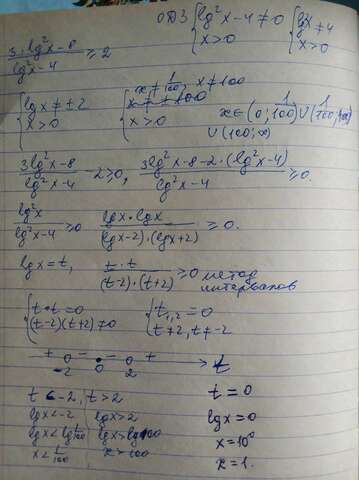 3·lg²x-8 / lg²x-4 ≥ 2
ОДЗ { lg²x-4≠0 { lg²x≠4
x>0 x>0
{ lgx≠±2 { x≠1/100, x≠100
x>0 x>0
x∈(0; 1/100)∪(1/100; 100)
∪(100; ∞)
3lg²x-8 / lg²x-4 - 2≥0, 3lg²x-8-2·(lg²x-4) / lg²x-4 ≥0.
lg²x / lg²x-4 ≥0 lgx·lgx / (lgx-2)·(lgx+2) ≥0.
lgx=t, t·t / (t-2)·(t+2) ≥0 метод
интервалов
{ t·t=0 { t1,2=0
(t-2)(t+2)≠0 t≠2, t≠-2
+ - - + t
-2 0 2
t<-2, t>2 t=0
lgx<-2 lgx>2 lgx=0
lgx<lg1/100 lgx>lg100 x=10⁰
x<1/100 x>100 x=1.